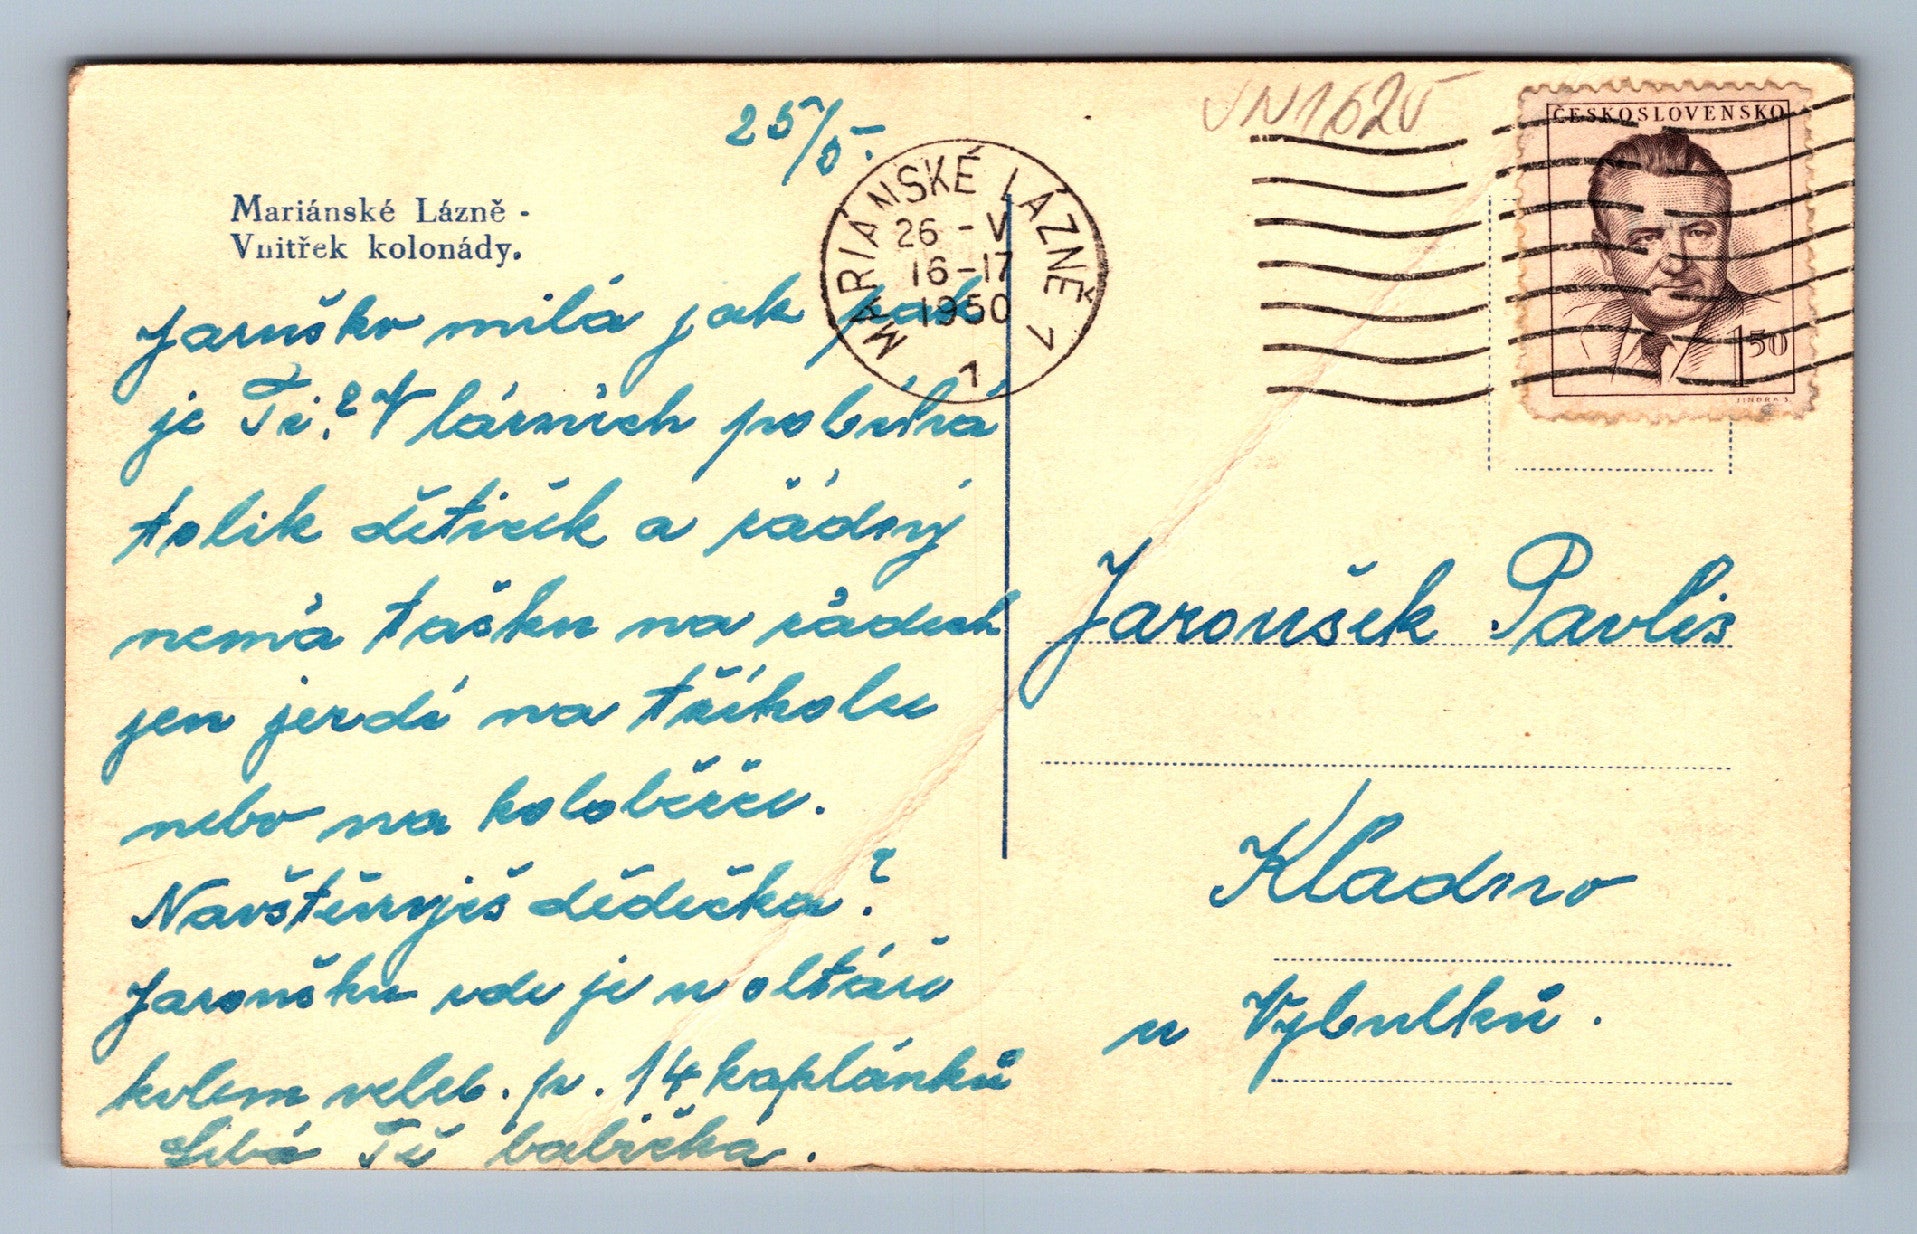 25/5.
VN1625
Mariánské Lázně -
Vnitřek kolonády.
MARIÁNSKÉ LÁZNĚ 1
26 - V
16-17
1950
1
ČESKOSLOVENSKO
1 50
JINDRA S.
Jaruško milá jak pak
je Ti? V lázních pobíhá
tolik dětiček a žádný
nemá tašku na zádech
jen jezdí na tříkolu
nebo na koloběžce.
Navštěvuješ dědečka?
Jaroušku zde je u oltáře
kolem veleb. p. 14 kaplánků
Líbá Tě babička.
Jaroušek Pavlis
Kladno
u Vybulků.